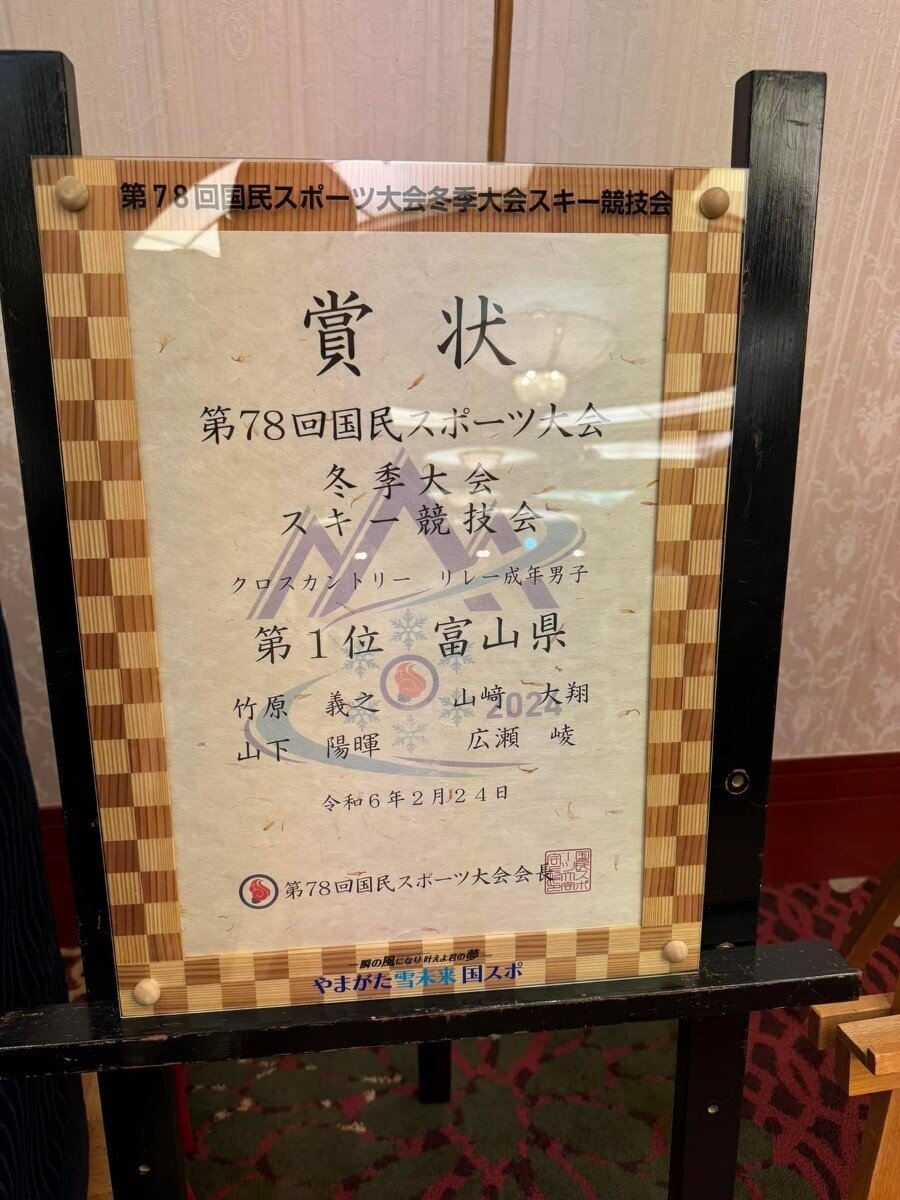 第78回国民スポーツ大会冬季大会スキー競技会
賞状
第78回国民スポーツ大会
冬季大会
スキー競技会
クロスカントリー　リレー成年男子
第1位　富山県
竹原　義之　山﨑　大翔
2024
山下　陽暉　広瀬　崚
令和6年2月24日
第78回国民スポーツ大会会長
一瞬の風になり 叶えよ君の夢
やまがた雪未来国スポ